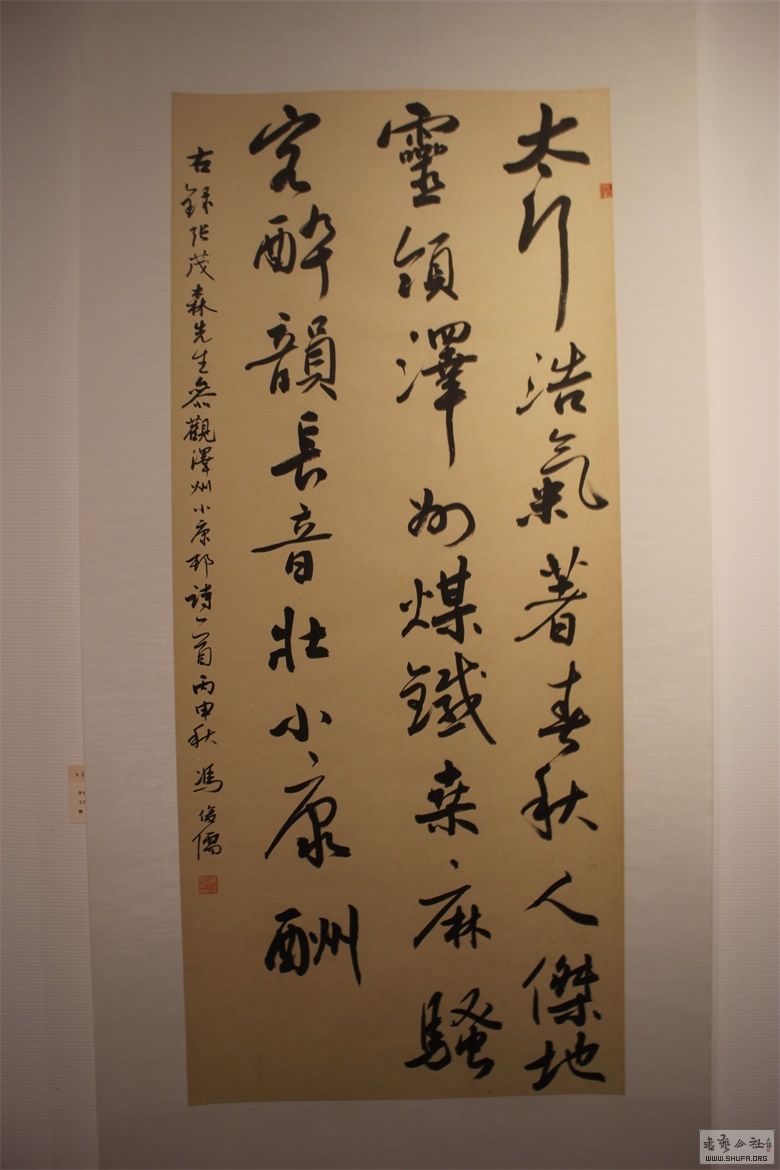 太行浩氣著春秋人傑地
靈領澤州煤鐵桑麻騷
客醉韻長音壯小康酬
右錄張茂森先生參觀澤州小康邨詩一首丙申秋馮俊儒
書藝公社
WWW.SHUFA.ORG